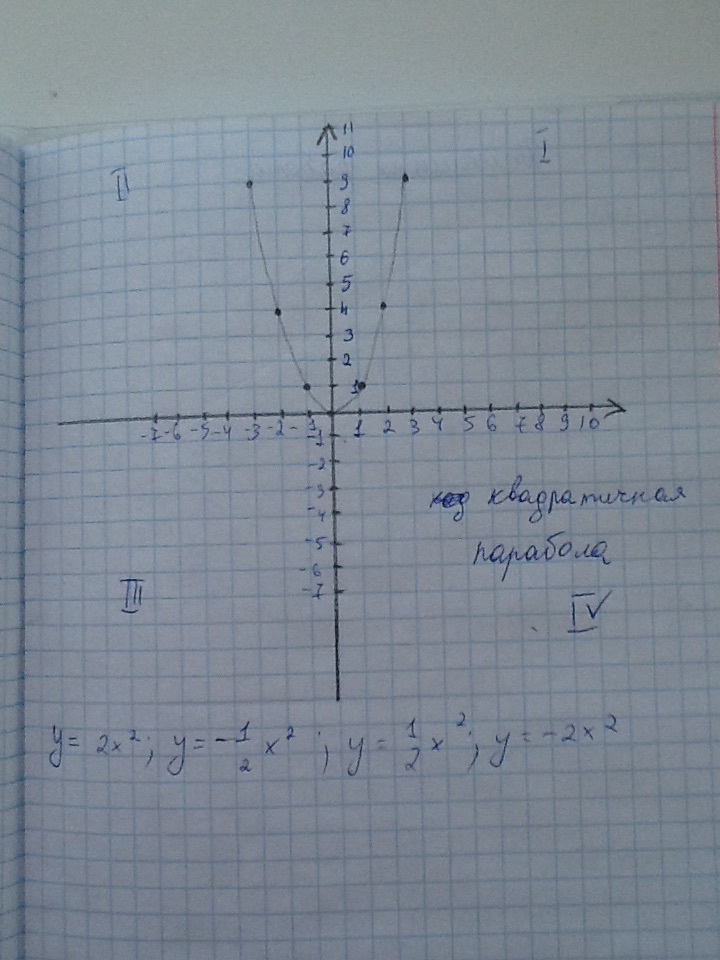 11
10
I
II
9
8
7
6
5
4
3
2
1
-7 -6 -5 -4 -3 -2 -1 1 2 3 4 5 6 7 8 9 10
-1
-2
-3
-4
-5
-6
-7
квадратичная
парабола
III
IV
y = 2x²; y = -1/2 x²; y = 1/2 x²; y = -2x²